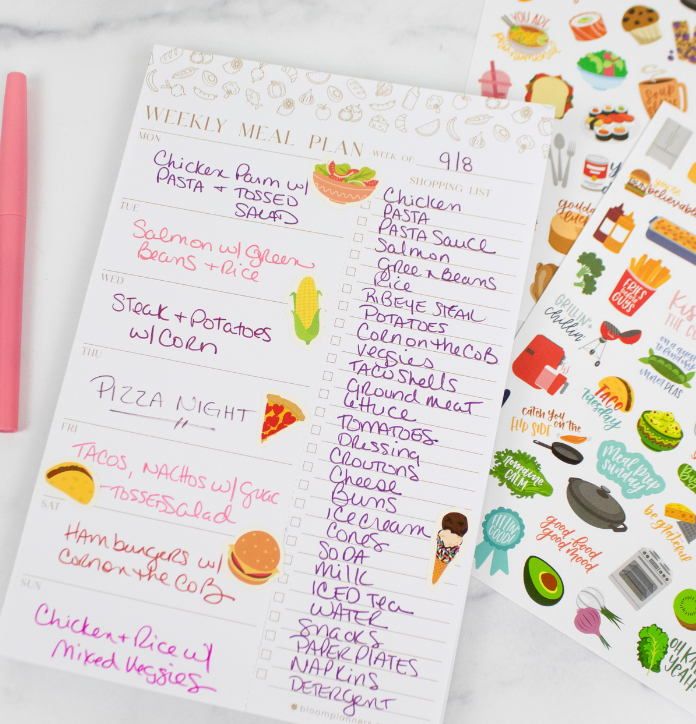 WEEKLY MEAL PLAN
WEEK OF 9/8
MON
Chicken Parm w/
PASTA + TOSSED
SALAD
TUE
Salmon w/ Green
Beans + Rice
WED
Steak + Potatoes
w/ CORN
THU
PIZZA NIGHT
FRI
TACOS, NACHOS w/ GUAC
-TOSSED Salad
SAT
Hamburgers w/
Corn on the CoB
SUN
Chicken + Rice w/
Mixed Veggies
SHOPPING LIST
Chicken
PASTA
PASTA Sauce
Salmon
Green Beans
Rice
RIBEYE STEAK
POTATOES
Corn on the CoB
Veggies
TACO Shells
Ground meat
Lettuce
TOMATOES
Dressing
CROUTONS
Cheese
Buns
ICE Cream
Cones
SODA
Milk
ICED Tea
WATER
Snacks
PAPER PLATES
NAPKINS
DETERGENT
bloomplanners
YOU ARE
SOUP
GRILLIN'
chillin'
FRIES
before
GUYS
TACO
Tuesday
catch you
on the
FLIP SIDE
Meal Prep
Sunday
Romaine
CALM
FEELIN'
GOOD!
good food
good mood
be grateful